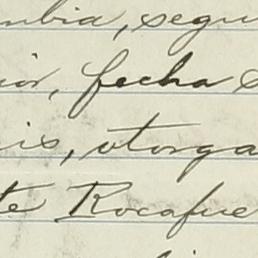 mbia, segu
ior, fecha
is, otorga
te Rocafue